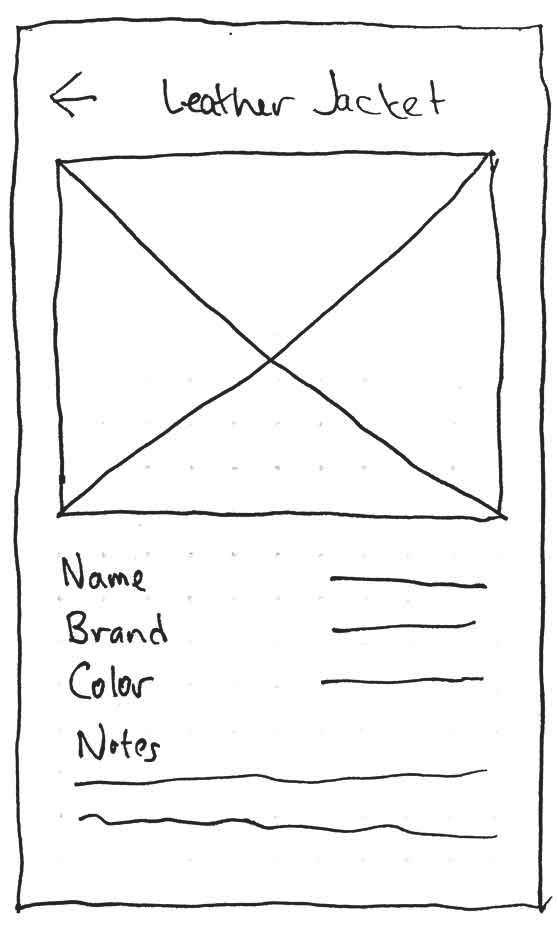 Leather Jacket
Name
Brand
Color
Notes